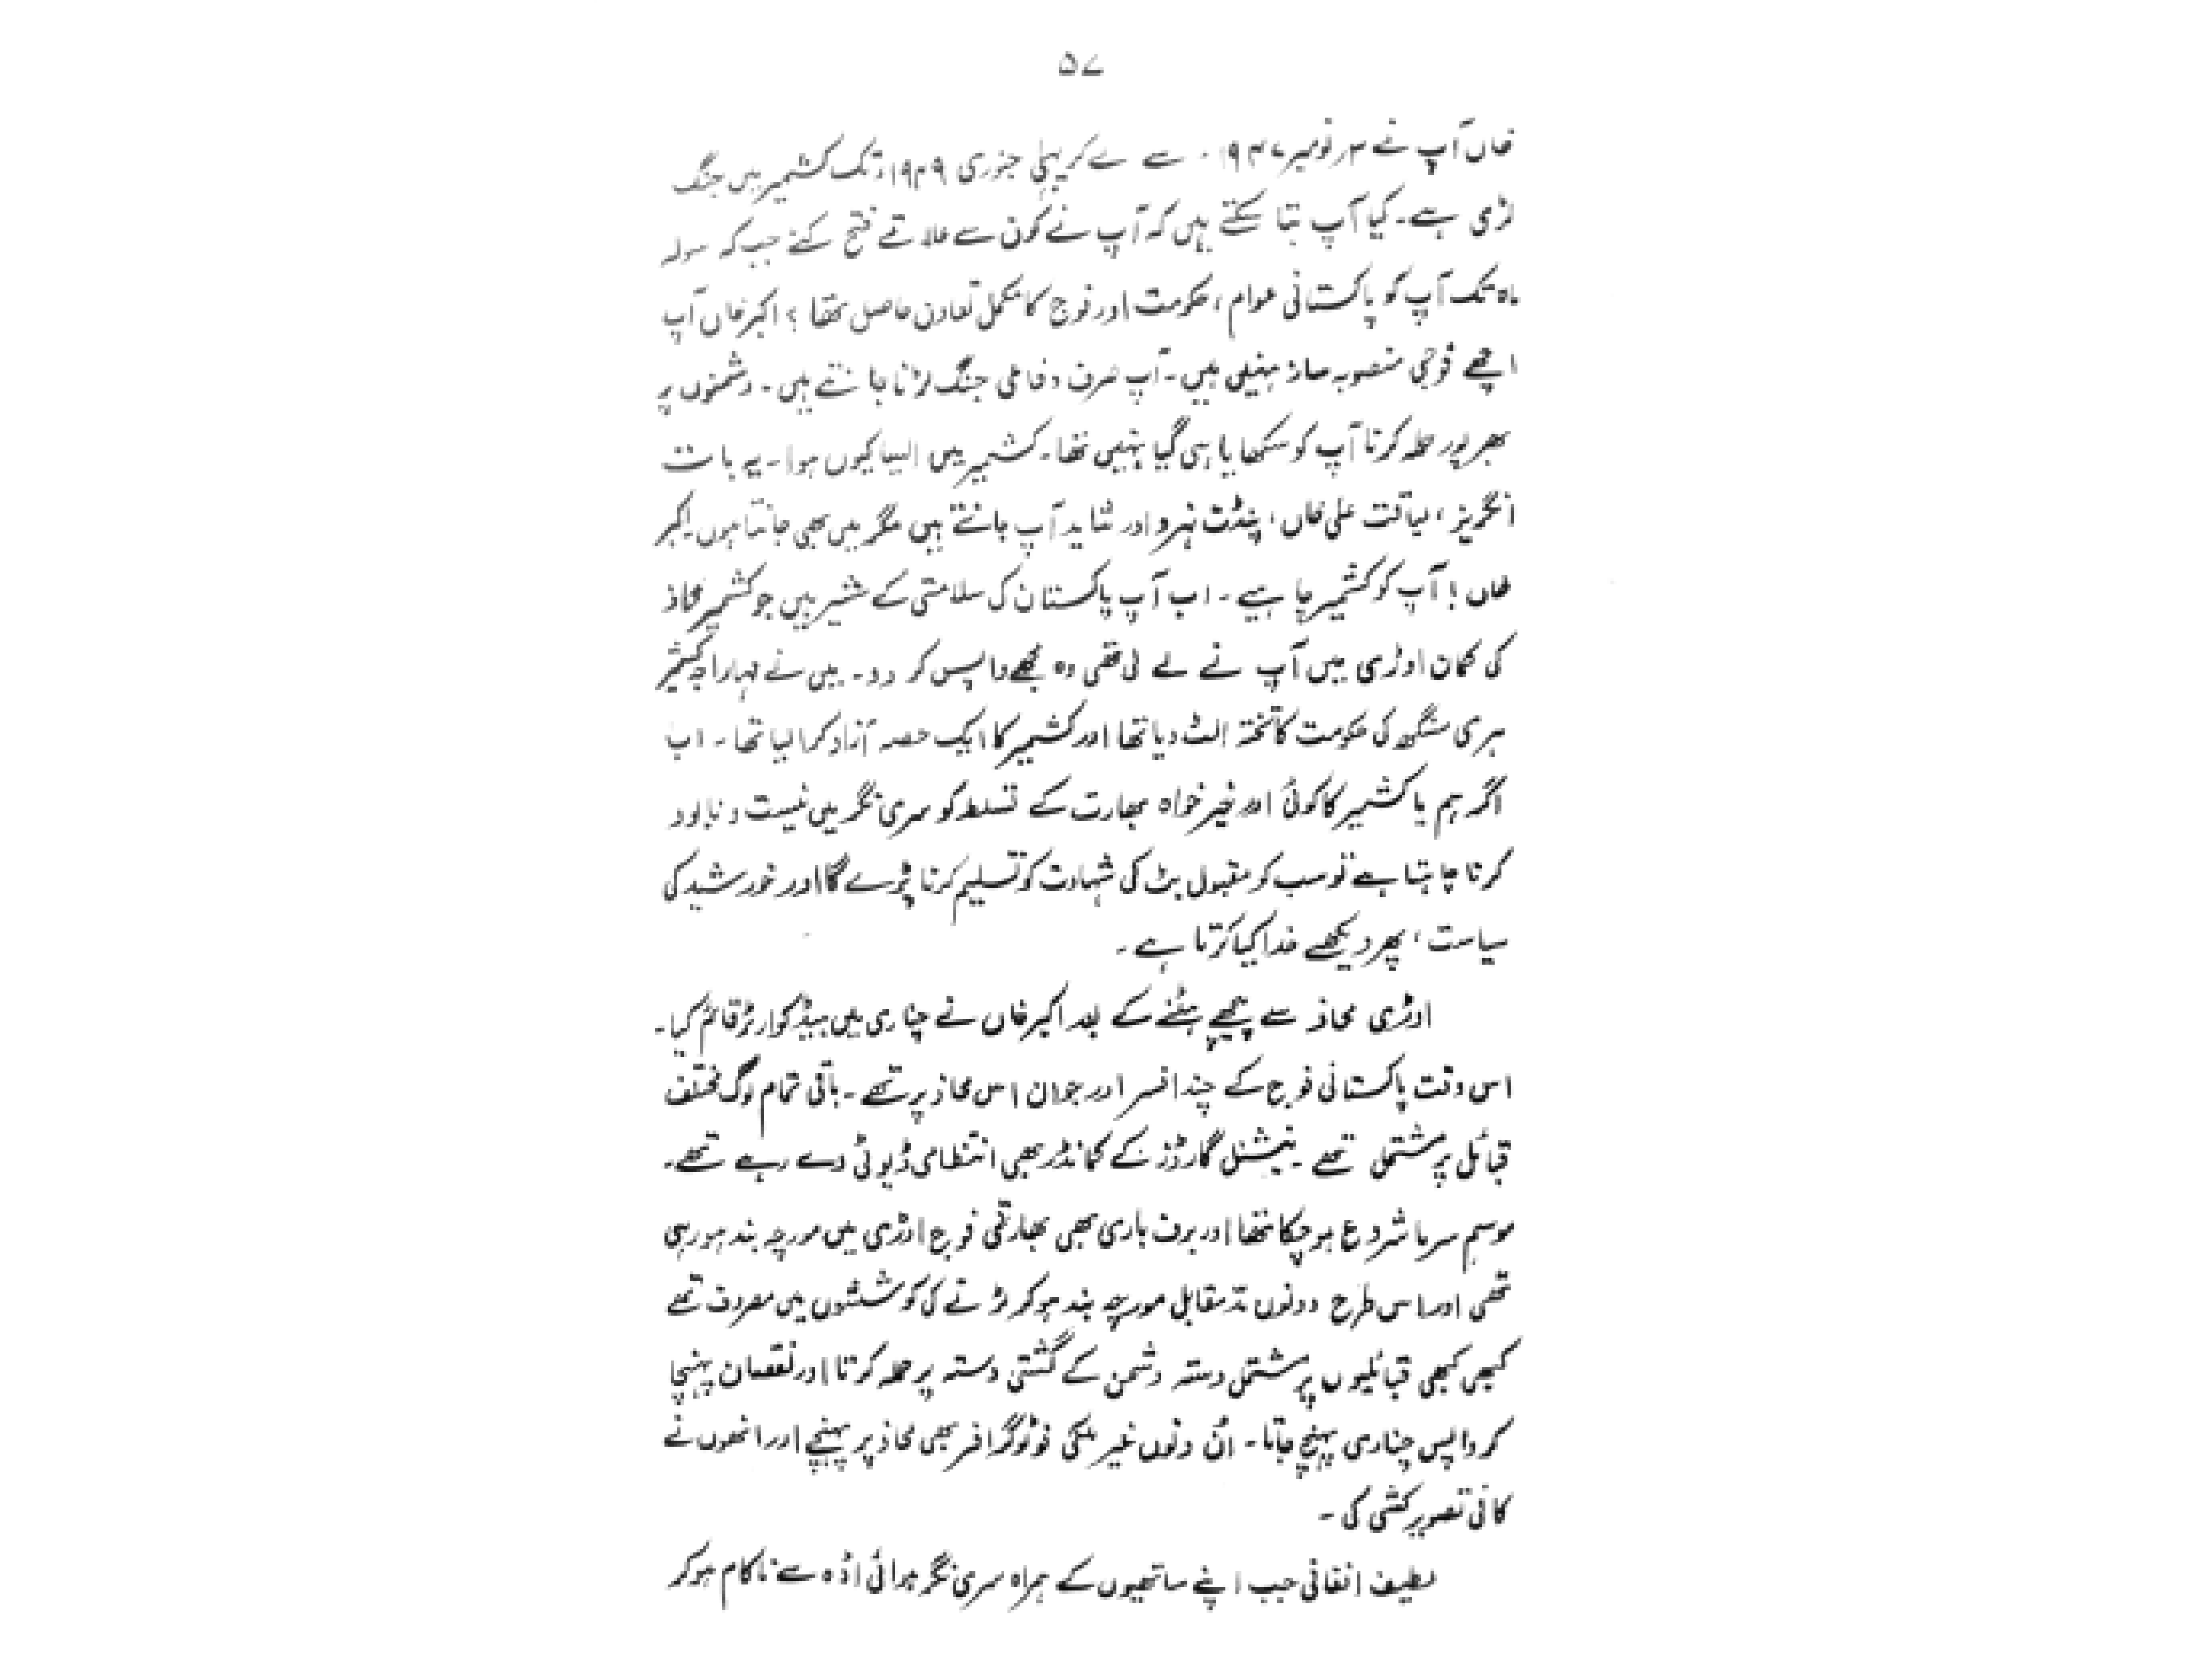 ۵۷
خاں آپ نے ۳ر نومبر ۱۹۴۷ء سے لے کر پہلی جنوری ۱۹۴۹ء تک کشمیر میں جنگ
لڑی ہے۔ کیا آپ بتا سکتے ہیں کہ آپ نے کون سے علاقے فتح کئے جب کہ سولہ
ماہ تک آپ کو پاکستانی عوام، حکومت اور فوج کا مکمل تعاون حاصل تھا؟ اکبر خاں آپ
اچھے فوجی منصوبہ ساز نہیں ہیں۔ آپ صرف دفاعی جنگ لڑنا جانتے ہیں۔ دشمنوں پر
بھرپور حملہ کرنا آپ کو سکھایا ہی گیا نہیں تھا۔ کشمیر میں ایسا کیوں ہوا۔ یہ بات
انگریز، لیاقت علی خاں، پنڈت نہرو اور شاید آپ جانتے ہیں مگر میں بھی جانتا ہوں۔ اکبر
خاں! آپ کو کشمیر چاہیے۔ اب آپ پاکستان کی سلامتی کے مشیر ہیں جو کشمیر محاذ
کی کمان اوڑی میں آپ نے لے لی تھی وہ مجھے واپس کر دو۔ میں نے مہاراجہ کشمیر
ہری سنگھ کی حکومت کا تختہ الٹ دیا تھا اور کشمیر کا ایک حصہ آزاد کرا لیا تھا۔ اب
اگر ہم یا کشمیر کا کوئی اور خیر خواہ بھارت کے تسلط کو سری نگر میں نیست و نابود
کرنا چاہتا ہے تو سب کو مقبول بٹ کی شہادت کو تسلیم کرنا پڑے گا اور خورشید کی
سیاست، پھر دیکھئے خدا کیا کرتا ہے۔
اوڑی محاذ سے پیچھے ہٹنے کے بعد اکبر خاں نے چناری میں ہیڈ کوارٹر قائم کیا۔
اس وقت پاکستانی فوج کے چند افسر اور جوان اس محاذ پر تھے۔ باقی تمام لوگ مختلف
قبائل پر مشتمل تھے۔ نیشنل گارڈز کے کمانڈر بھی انتظامی ڈیوٹی دے رہے تھے۔
موسم سرما شروع ہو چکا تھا اور برف باری بھی بھارتی فوج اوڑی میں مورچہ بند ہو رہی
تھی اور اس طرح دونوں مدّ مقابل مورچہ بند ہو کر لڑنے کی کوششوں میں مصروف تھے
کبھی کبھی قبائلیوں پر مشتمل دستہ دشمن کے گشتی دستہ پر حملہ کرتا اور نقصان پہنچا
کر واپس چناری پہنچ جاتا۔ اُن دنوں غیر ملکی فوٹوگرافر بھی محاذ پر پہنچے اور انھوں نے
کافی تصویر کشی کی۔
لطیف افغانی جب اپنے ساتھیوں کے ہمراہ سری نگر ہوائی اڈہ سے ناکام ہو کر